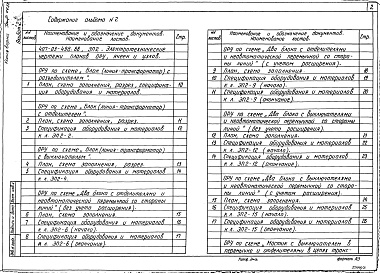 Содержание альбома №2
2
№№ листов
Наименование и обозначение документов. наименование листов.
Стр.
407-03-456.88, ЭП2 - Электротехнические
чертежи планов ОРУ, ячеек и узлов.
ОРУ по схеме „Блок (линия-трансформатор) с
разъединителем".
1 План, схема заполнения, разрез, спецификация
оборудования и материалов. 10
ОРУ по схеме „Блок (линия-трансформатор)
с отделителем".
2 План, схема заполнения, разрез. 11
3 Спецификация оборудования и материалов 12
к л. ЭП2-2.
ОРУ по схеме „Блок (линия-трансформатор)
с выключателем".
4 План, схема заполнения, разрез. 13
5 Спецификация оборудования и материалов 14
ОРУ по схеме „Два блока с отделителями и
неавтоматической перемычкой со стороны
линий" (без учета расширения).
6 План, схема заполнения. 15
7 Спецификация оборудования и материалов 16
к л. ЭП2-6 (начало).
8 Спецификация оборудования и материалов 17
к л. ЭП2-6 (окончание).
№№ листов
Наименование и обозначение документов. наименование листов.
Стр.
ОРУ по схеме „Два блока с отделителями
и неавтоматической перемычкой со сторо-
ны линий" (с учетом расширения).
9 План, схема заполнения 18
10 Спецификация оборудования и материалов
к л. ЭП2-9 (начало).
11 Спецификация оборудования и материалов
к л. ЭП2-9 (окончание).
ОРУ по схеме „Два блока с выключателями
и неавтоматической перемычкой со стороны
линий" (без учета расширения).
12 План, схема заполнения. 21
13 Спецификация оборудования и материалов 22
к л. ЭП2-12 (начало).
14 Спецификация оборудования и материалов 23
к л. ЭП2-12 (окончание).
ОРУ по схеме „Два блока с выключателями
и неавтоматической перемычкой со сторо-
ны линий" (с учетом расширения).
15 План, схема заполнения.
16 Спецификация оборудования и материалов
к л. ЭП2-15 (начало).
17 Спецификация оборудования и материалов
к л. ЭП2-15 (окончание).
ОРУ по схеме „Мостик с выключателем в
перемычке и отделителями в цепях транс-
формат А3